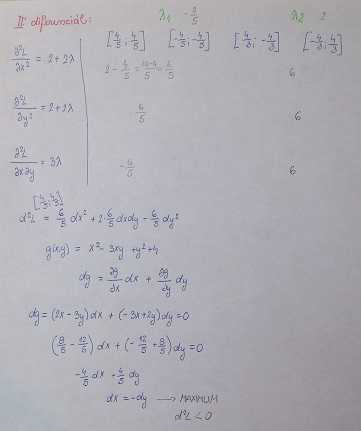 II diferenciál: λ₁ - 2/5 λ₂ 2
[4/5; 4/5] [-4/5; -4/5] [4/3; -4/3] [-4/3; 4/3]
∂²L/∂x² = 2+2λ 2 - 4/5 = 10-4/5 = 6/5 6
∂²L/∂y² = 2+2λ 6/5 6
∂²L/∂x∂y = 3λ - 6/5 6
[4/5; 4/5]
d²L = 6/5 dx² + 2·6/5 dxdy - 6/5 dy²
g(x,y) = x² - 3xy + y² + 4
dg = ∂g/∂x dx + ∂g/∂y dy
dg = (2x - 3y) dx + (-3x + 2y) dy = 0
(8/5 - 12/5) dx + (- 12/5 + 8/5) dy = 0
- 4/5 dx - 4/5 dy
dx = -dy → MAXIMUM
d²L < 0